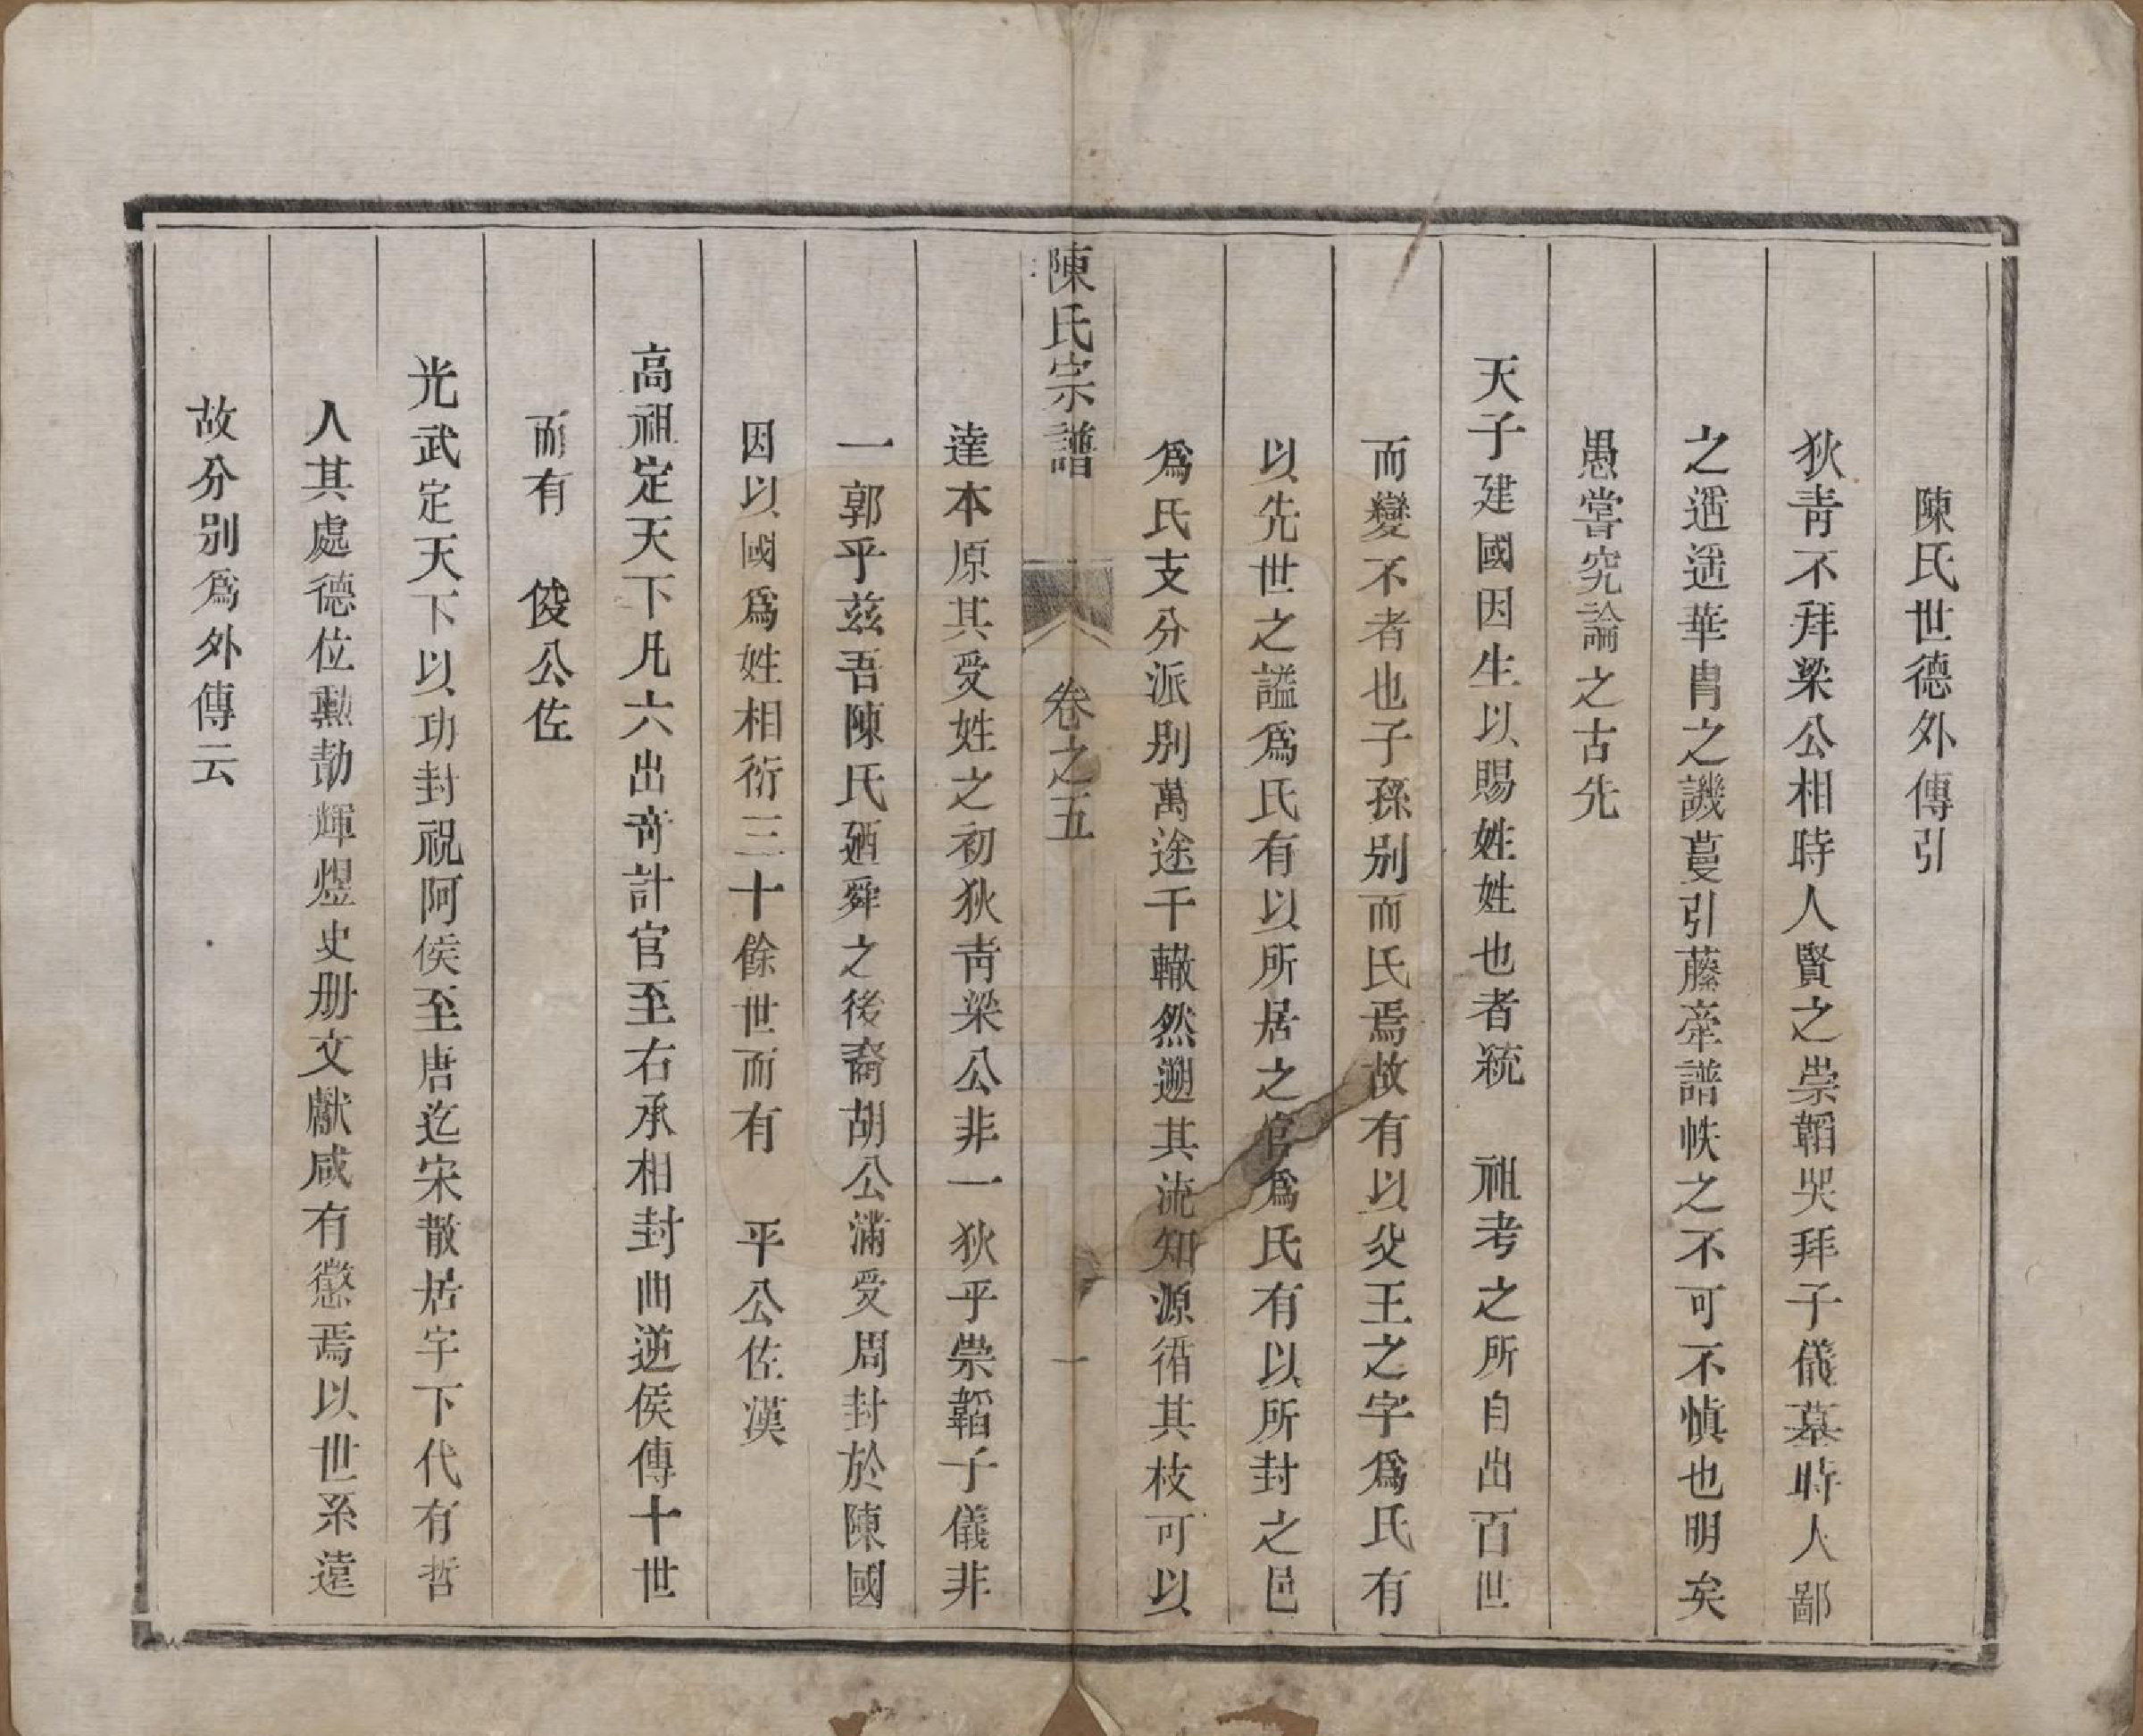 陳氏世德外傳引
狄靑不拜梁公相時人賢之崇韜哭拜子儀墓時人鄙
之遥遥華胄之譏蔓引藤牽譜帙之不可不愼也明矣
愚嘗究論之古先
天子建國因生以賜姓姓也者統　祖考之所自出百世
而變不者也子孫别而氏焉故有以父王之字爲氏有
以先世之謚爲氏有以所居之官爲氏有以所封之邑
爲氏支分派别萬途千轍然遡其流知源循其枝可以
陳氏宗譜　卷之五　一
達本原其受姓之初狄靑梁公非一狄乎崇韜子儀非
一郭乎茲吾陳氏廼舜之後裔胡公滿受周封於陳國
因以國爲姓相衍三十餘世而有　平公佐漢
高祖定天下凡六出奇計官至右承相封曲逆侯傳十世
而有　俊公佐
光武定天下以功封祝阿侯至唐迄宋散居宇下代有哲
人其處德位勳勛輝煜史册文獻咸有懲焉以世系遠
故分别爲外傳云